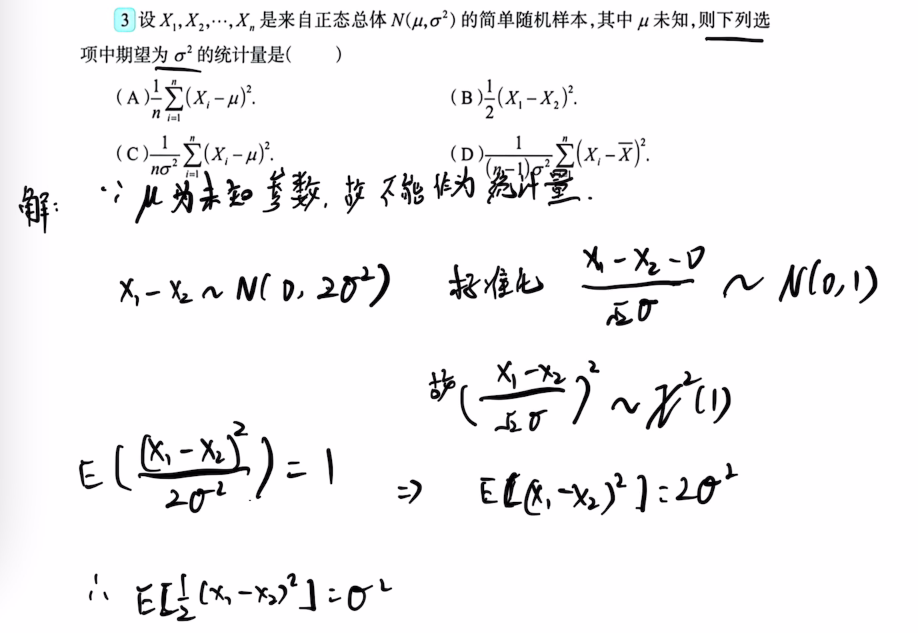 3 设 X₁,X₂,⋯,Xₙ 是来自正态总体 N(μ,σ²) 的简单随机样本,其中 μ 未知,则下列选
项中期望为 σ² 的统计量是(  )
(A) 1/n ∑ᵢ₌₁ⁿ (Xᵢ-μ)². (B) 1/2 (X₁-X₂)².
(C) 1/(nσ²) ∑ᵢ₌₁ⁿ (Xᵢ-μ)². (D) 1/((n-1)σ²) ∑ᵢ₌₁ⁿ (Xᵢ-X̄)².
解: ∵ μ为未知参数, 故不能作为统计量.
X₁-X₂ ~ N(0, 2σ²) 标准化 (X₁-X₂-0)/(√2σ) ~ N(0,1)
故 ((X₁-X₂)/(√2σ))² ~ χ²(1)
E((X₁-X₂)²/(2σ²)) = 1 ⇒ E[(X₁-X₂)²] = 2σ²
∴ E[1/2 (X₁-X₂)²] = σ²